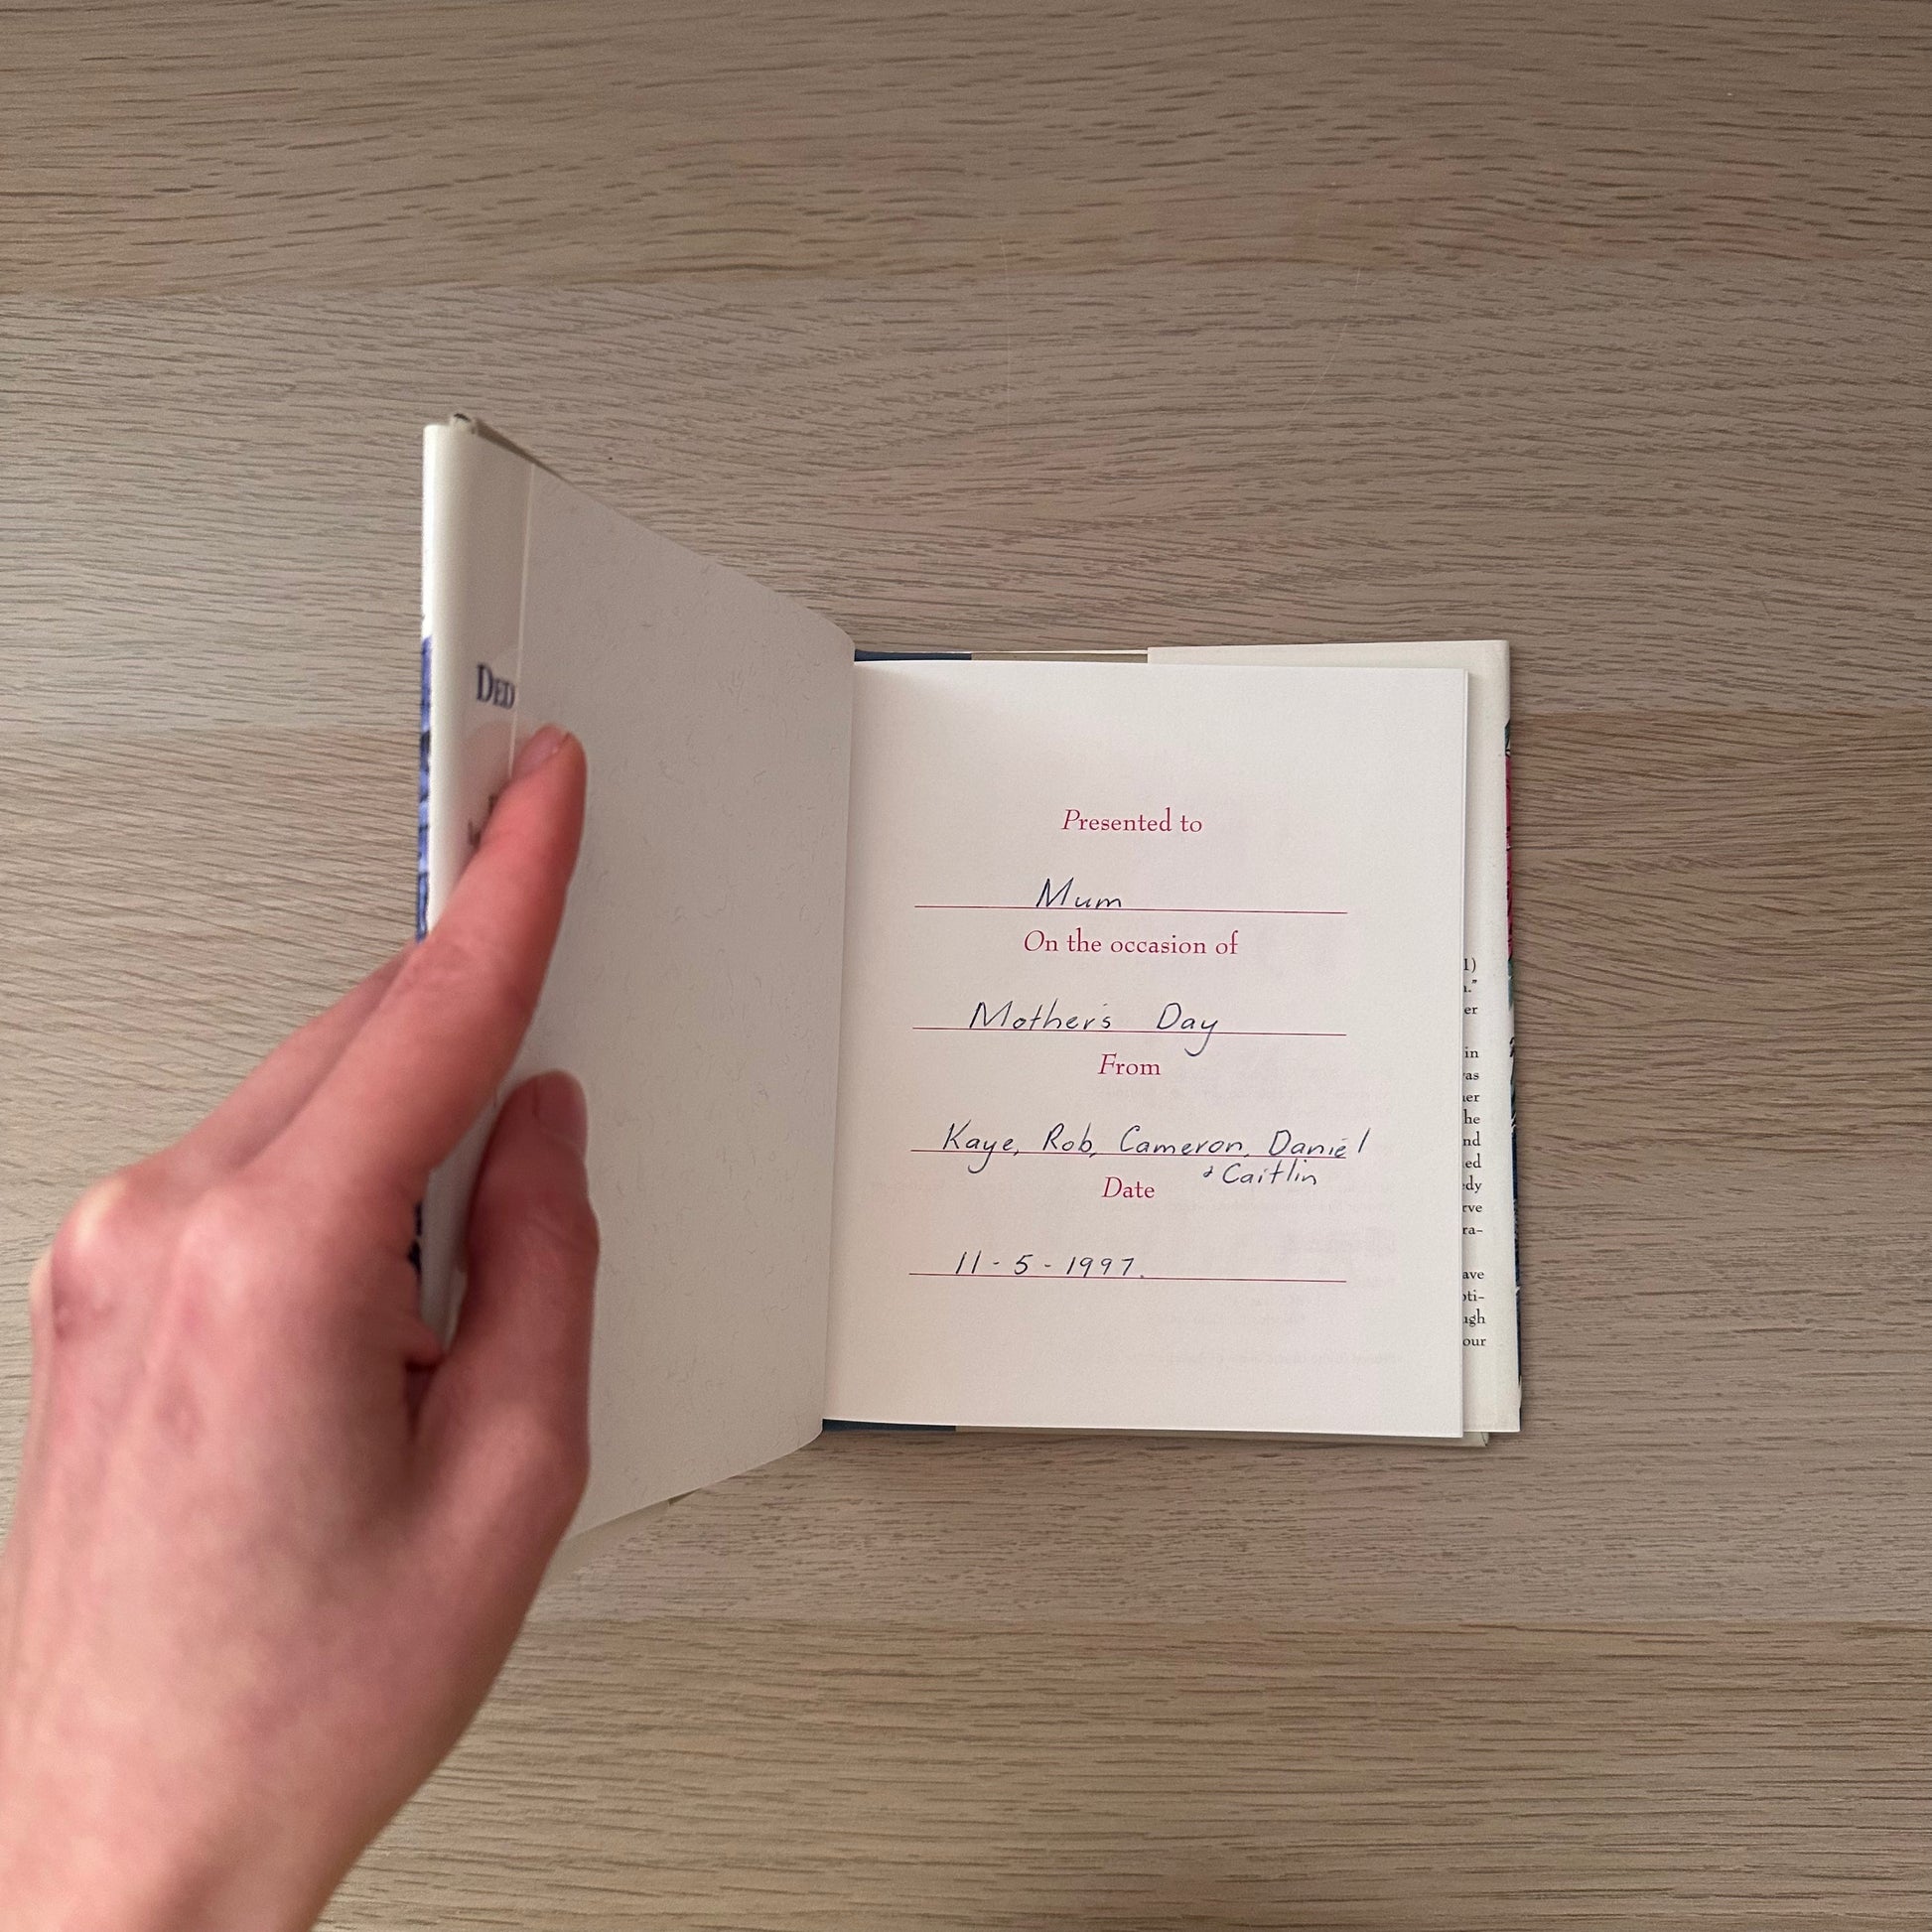 DED
Presented to
Mum
On the occasion of
Mother's Day
From
Kaye, Rob, Cameron, Daniel
& Caitlin
Date
11-5-1997.
1)
er
in
as
er
he
nd
ed
dy
rve
ra-
ave
ti-
gh
our